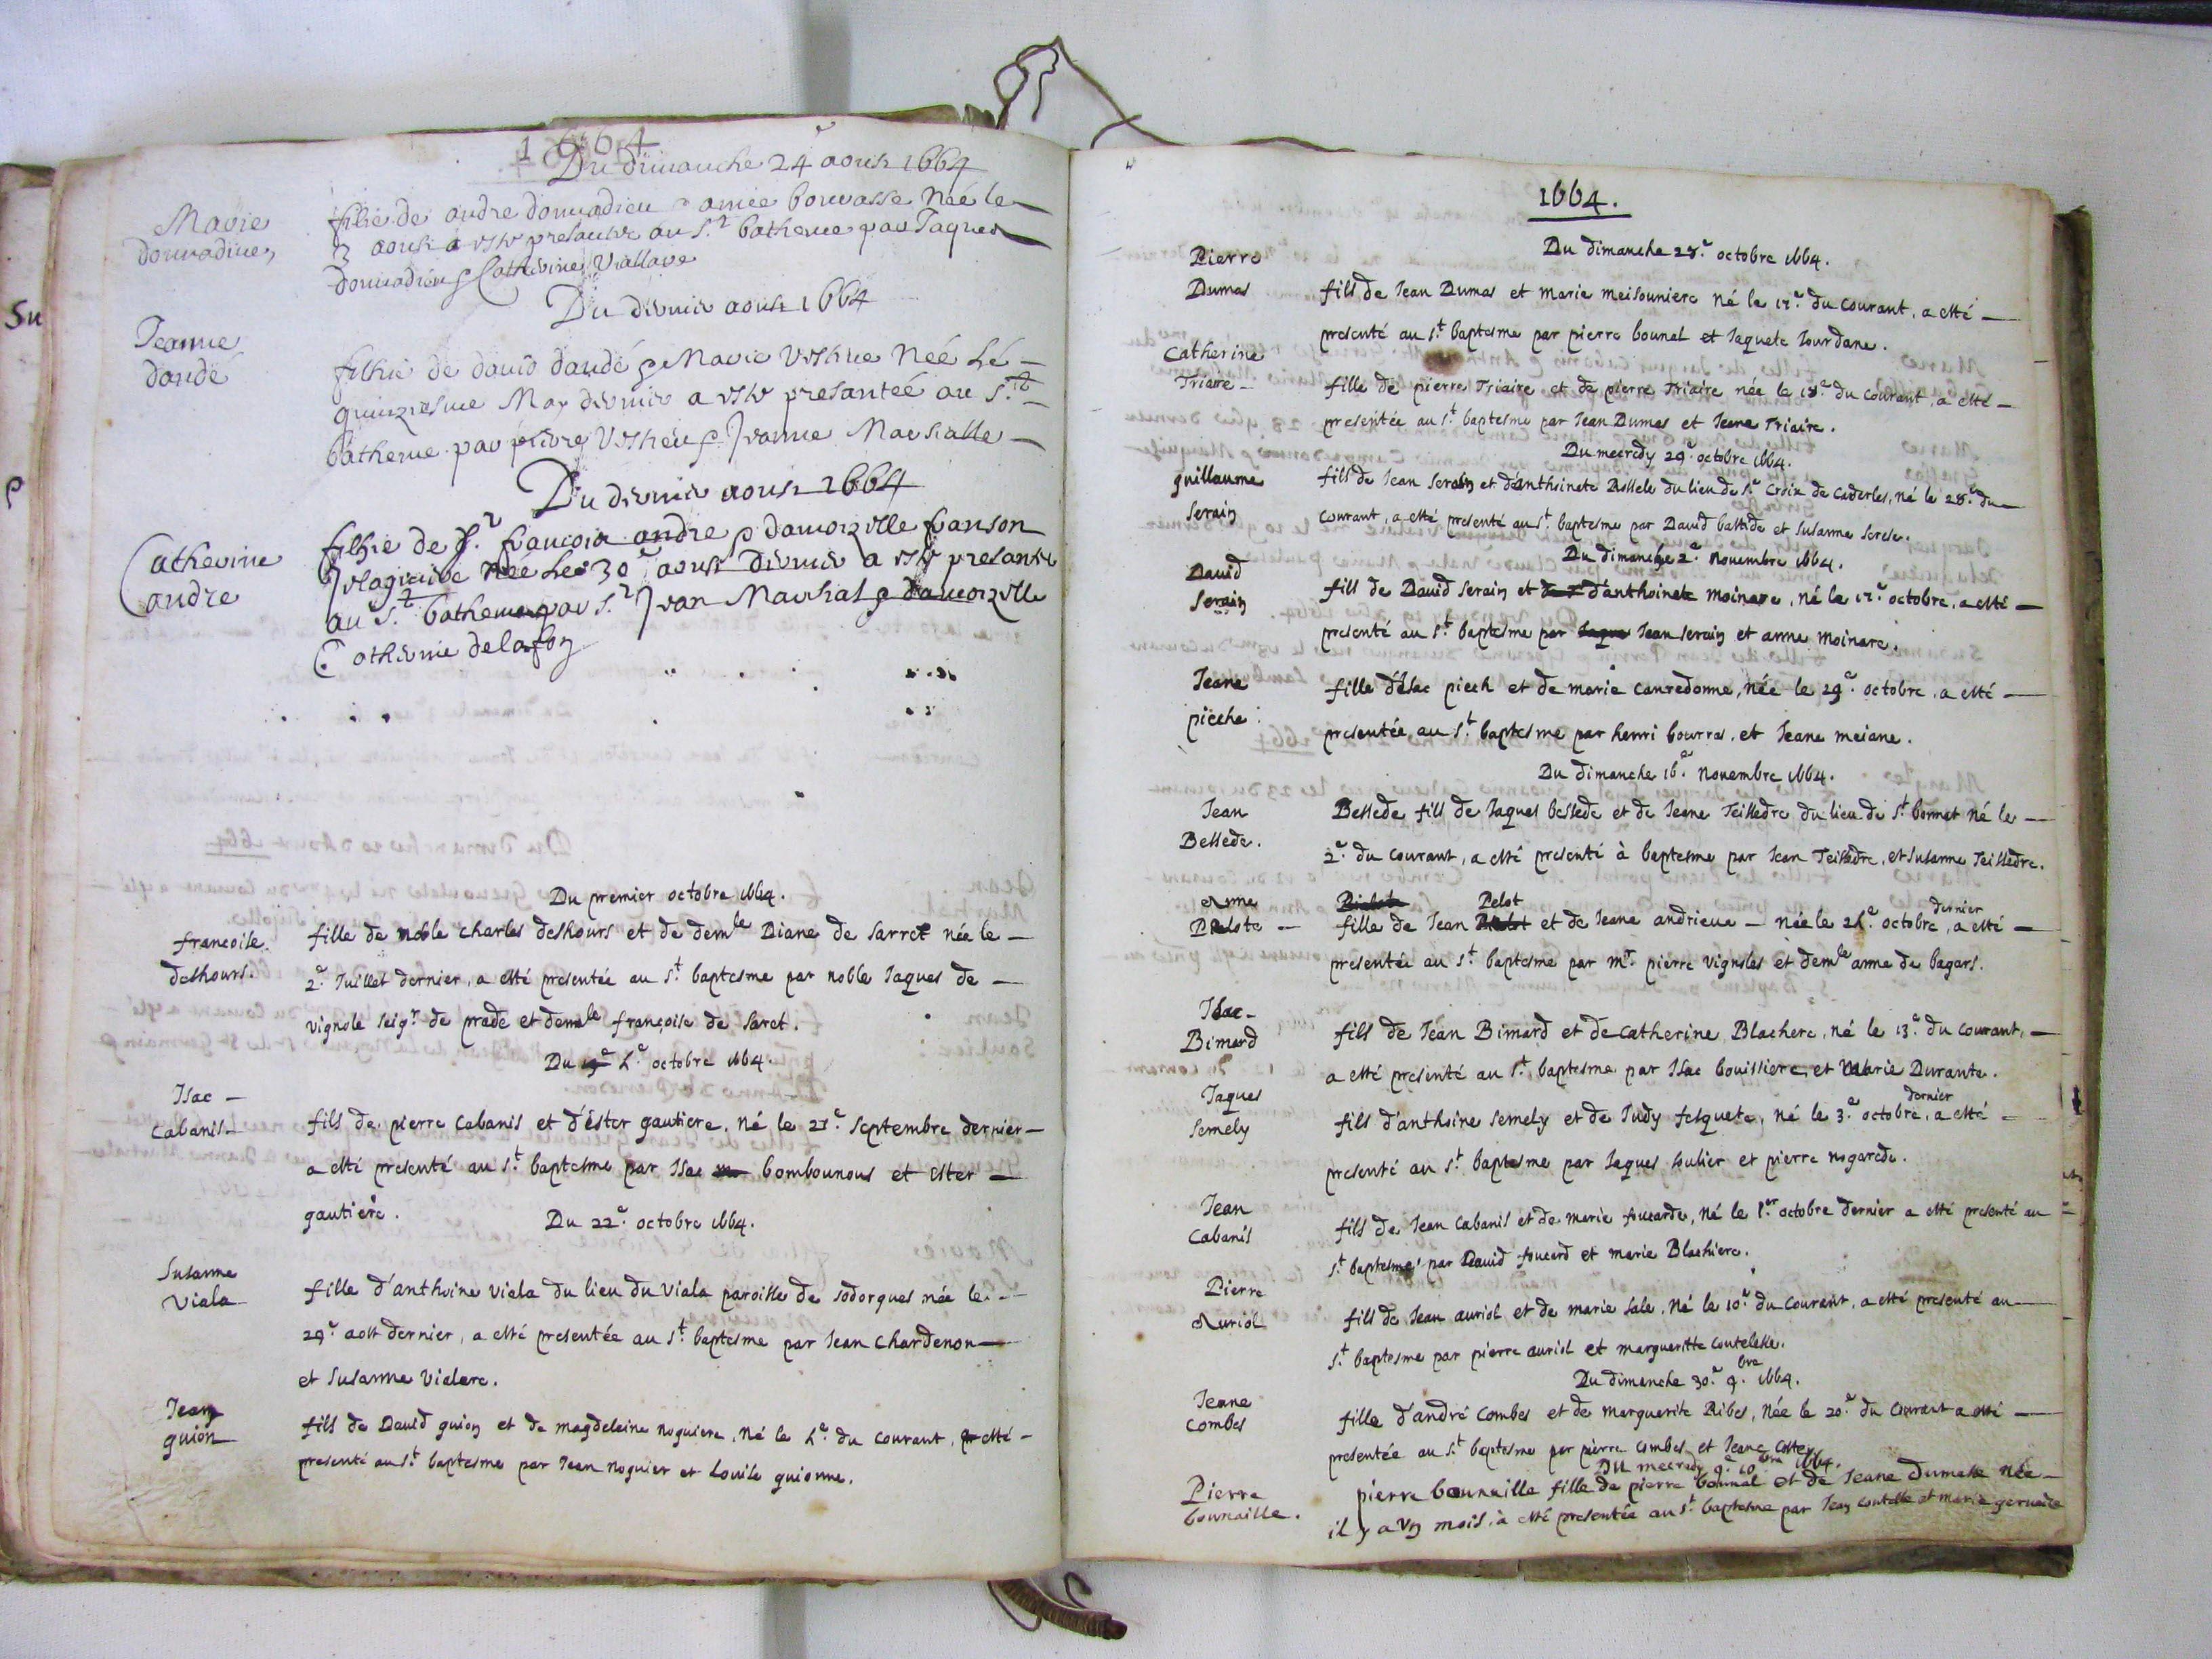 1664
Du dimanche 24e aoust 1664
Marie donnadiue
filhe de andre donnadieu & amiee bourasse Née le
3 aoust a este presantée au St batheme par Jaques
donnadieu & Catherine Viallare
Du dernier aoust 1664
Jeanne daudé
filhie de dauid daudé & Marie Vethue Néé Lé
quinziesme May dernier a este presantéé au St
batheme par pierre Vethieu & Jeanne Marsialle
Du dernier aoust 1664
Catherine andre
filhie de Sr francois andre & damoizelle fanson
Née Le 30e aoust dernier a esté presantée
au St batheme par Sr Jean Marshal & damoizelle
Catherine delafon
Du premier octobre 1664.
françoise deshours.
fille de noble charles deshours et de demle Diane de sarret née le
2e Juillet dernier, a esté presentée au St baptesme par noble Jaques de
vignole seigr de prade et demle françoise de saret.
Du 5e octobre 1664.
Isac Cabanis
fils de pierre Cabanis et d'ester gautiere, né le 21e septembre dernier
a esté presenté au St baptesme par Isac bombounous et ester
gautiere.
Du 22e octobre 1664.
Susanne Viala
fille d'anthoine viala du lieu du Viala paroisse de sodorgues née le
29e aost dernier, a esté presentée au St baptesme par Jean Chardenon
et Susanne vialere.
Jean guion
fils de David guion et de magdeleine noguiere, né le 5e du courant, a esté
presenté au St baptesme par Jean noguier et Louise guionne.
1664.
Du dimanche 28e octobre 1664.
Pierre Dumas
fils de Jean Dumas et marie meisouniere né le 12e du courant, a esté
presenté au St baptesme par pierre bounal et Jaquete Jourdane.
Catherine Triaire
fille de pierre Triaire et de pierre Triaire née le 18e du courant, a esté
presentée au St baptesme par Jean Dumas et Jeane Triaire.
Du mecredy 29e octobre 1664.
guillaume serain
fils de Jean serain et d'anthoinete Rossele du lieu de Ste Croix de Caderles, né le 28e du
courant, a esté presenté au St baptesme par David bastide et Susanne serese.
Du dimanche 2e Novembre 1664.
David Serain
fils de David serain et d'anthoinete moinare, né le 12e octobre, a esté
presenté au St baptesme par Jean serain et anne moinare.
Jeane pieche
fille d'ésac piech et de marie canredonne, née le 29e octobre, a esté
presentée au St baptesme par henri bourras, et Jeane meiane.
Du dimanche 16e Novembre 1664.
Jean Bessede.
Bessede fils de Jaques bessede et de Jeane Teissedre du lieu de St bonnet né le
2e du courant, a esté presenté à baptesme par Jean Teissedre, et Susanne Teissedre.
Anne Pelote
Pelot dernier
fille de Jean et de Jeane andrieue née le 25e octobre, a esté
presentée au St baptesme par mr pierre vignoles et demle anne de bagars.
Isac Bimard
fils de Jean Bimard et de Catherine Blachere, né le 13e du courant,
a esté presenté au St baptesme par Isac bouissiere et Marie Durante.
dernier
Jaques semely
fils d'anthoine semely et de Judy fesquete, né le 3e octobre, a esté
presenté au St baptesme par Jaques soulier et pierre nogarede.
Jean Cabanis
fils de Jean Cabanis et de marie foucarde, né le 1er octobre dernier a esté presenté au
St baptesme par David foucard et marie Blachiere.
Pierre Auriol
fils de Jean auriol et de marie sale, né le 10e du Courant, a esté presenté au
St baptesme par pierre auriol et margueritte coutelesse.
Du dimanche 30e 9bre 1664.
Jeane Combes
fille d'andré Combes et de marguerite Ribes, née le 20e du Courant a esté
presentée au St baptesme par pierre combes et Jeane Coste
Du mecredy 10bre 1664.
Pierre bounaille.
pierre bounaille fille de pierre bounal et de Jeane dumasse née
il y a vn mois, à esté presentée au St baptesme par Jean coutelle et marie geruaise